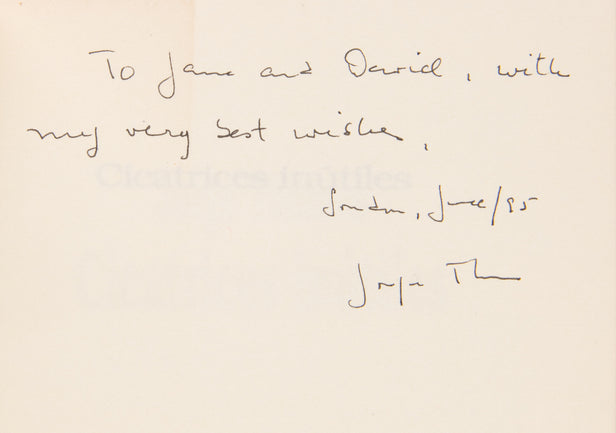 To Jane and David, with
my very best wishes,
Cicatrices inútiles
London, June/95
Jorge